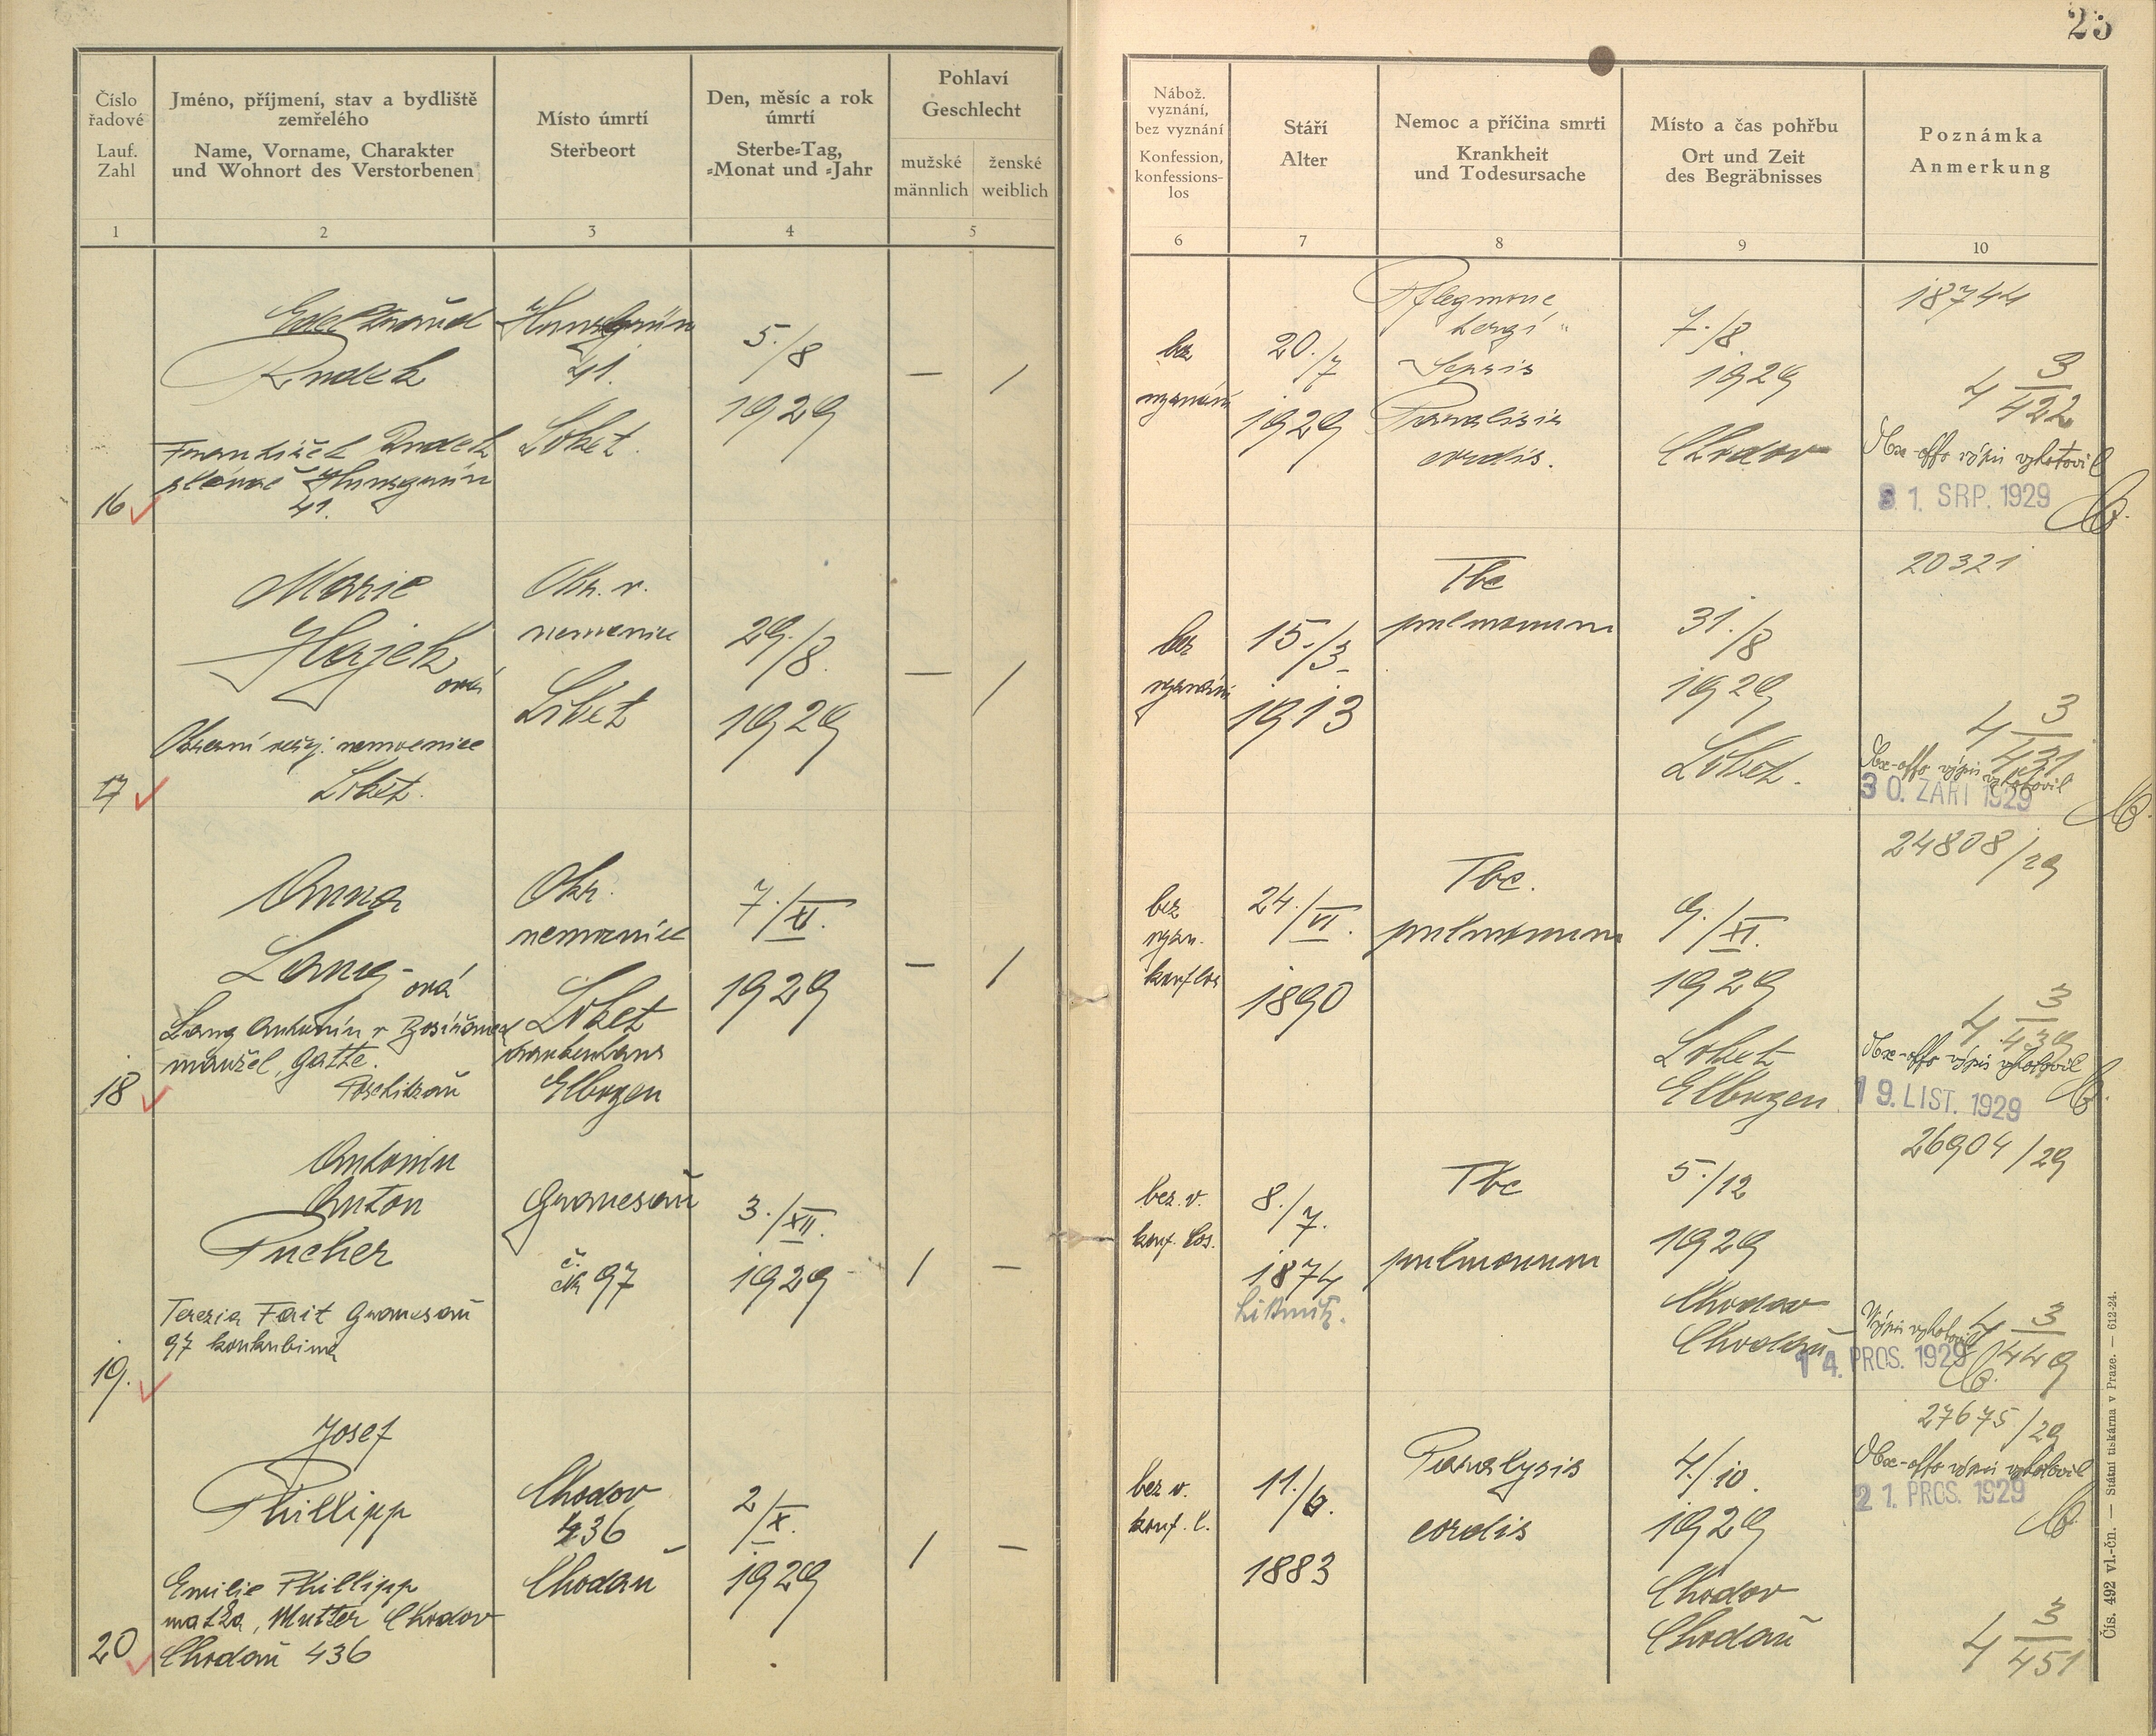 25
Číslo
řadové
Lauf.
Zahl
Jméno, příjmení, stav a bydliště
zemřelého
Name, Vorname, Charakter
und Wohnort des Verstorbenen
Místo úmrtí
Sterbeort
Den, měsíc a rok
úmrtí
Sterbe-Tag,
-Monat und -Jahr
Pohlaví
Geschlecht
mužské
männlich
ženské
weiblich
Nábož.
vyznání,
bez vyznání
Konfession,
konfessions-
los
Stáří
Alter
Nemoc a příčina smrti
Krankheit
und Todesursache
Místo a čas pohřbu
Ort und Zeit
des Begräbnisses
Poznámka
Anmerkung
1
2
3
4
5
6
7
8
9
10
16
František
41.
41.
Loket.
5./8
1929
— /
bez
vyznání
20./7
1929
Flegmone
Sepsis
Paralisis
cordis.
7./8
1929
Chodov
18744
4 3/422
Ex-offo výpis vyhotovil
31. SRP. 1929
17
Marie
Hajek
ová
Okresní veřej. nemocnice
Loket.
Okr. v.
nemocnice
Loket
29./8.
1929
— /
bez
vyznání
15./3.
1913
Tbc
pulmonum
31./8
1929
Loket.
20321
4 3/431
Ex-offo výpis vyhotovil
30. ZÁŘÍ 1929
18
Anna
Lang-ová
Lang Antonín v
manžel, Gatte.
Okr.
nemocnice
Loket
Krankenhaus
Elbogen
7./XI.
1929
— /
bez
vyzn.
konf.los
24./VI.
1890
Tbc.
pulmonum
9./XI.
1929
Loket
Elbogen
24808/29
4 3/439
Ex-offo výpis vyhotovil
19. LIST. 1929
19.
Antonín
Anton
Pucher
Terezia Fait Granesau
97 konkubina
Granesau
č.
97
3./XII.
1929
/ —
bez. v.
konf. los.
8./7.
1874
Tbc
pulmonum
5./12
1929
Chodov
Chodau
26904/29
4 3/449
Výpis vyhotovil
14. PROS. 1929
20
Josef
Phillipp
Emilie Phillipp
matka, Mutter Chodov
Chodau 436
Chodov
436
Chodau
2/X.
1929
/ —
bez v.
konf. l.
11./6.
1883
Paralysis
cordis
4./10.
1929
Chodov
Chodau
27675/29
Ex-offo výpis vyhotovil
21. PROS. 1929
4 3/451
Čís. 492 vl.-čn. — Státní tiskárna v Praze. — 612-24.